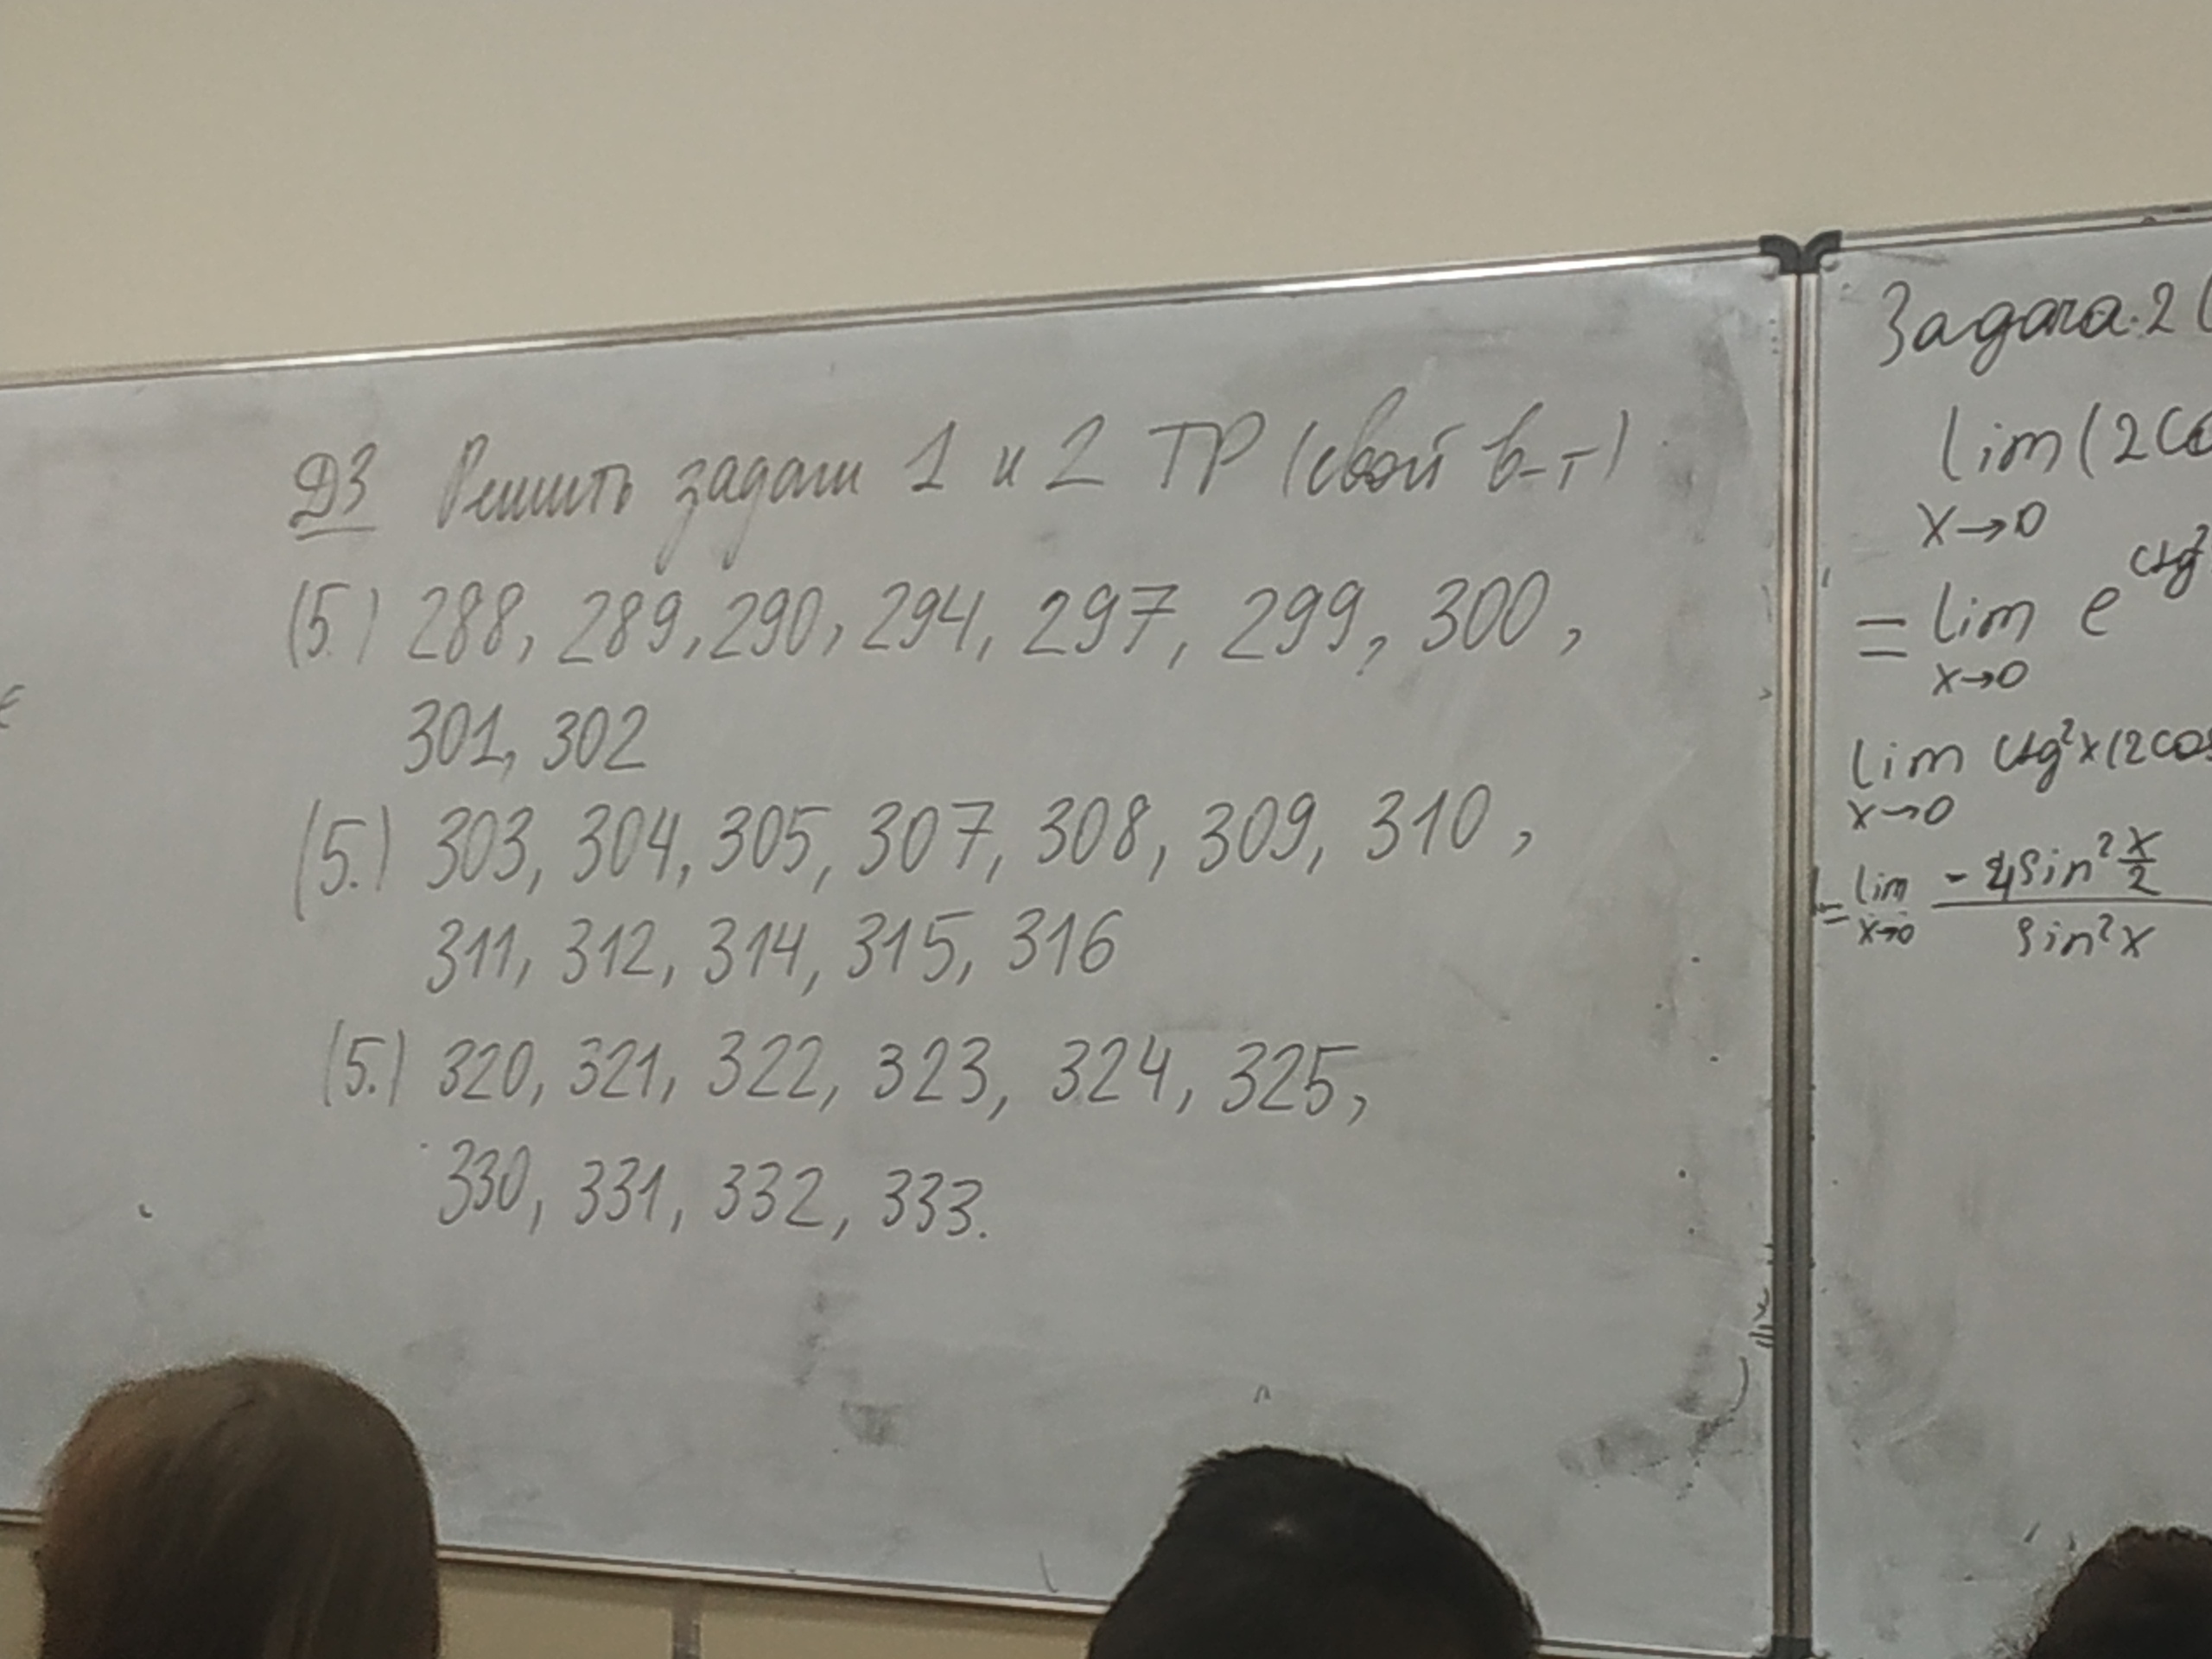 ДЗ Решить задачи 1 и 2 ТР (свой в-т)
(5.) 288, 289, 290, 294, 297, 299, 300,
301, 302
(5.) 303, 304, 305, 307, 308, 309, 310,
311, 312, 314, 315, 316
(5.) 320, 321, 322, 323, 324, 325,
330, 331, 332, 333.
Задача.2 (
lim (2co
x→0
= lim e^ctg²
x→0
lim ctg²x(2cos
x→0
= lim -4sin² x/2
x→0 sin²x